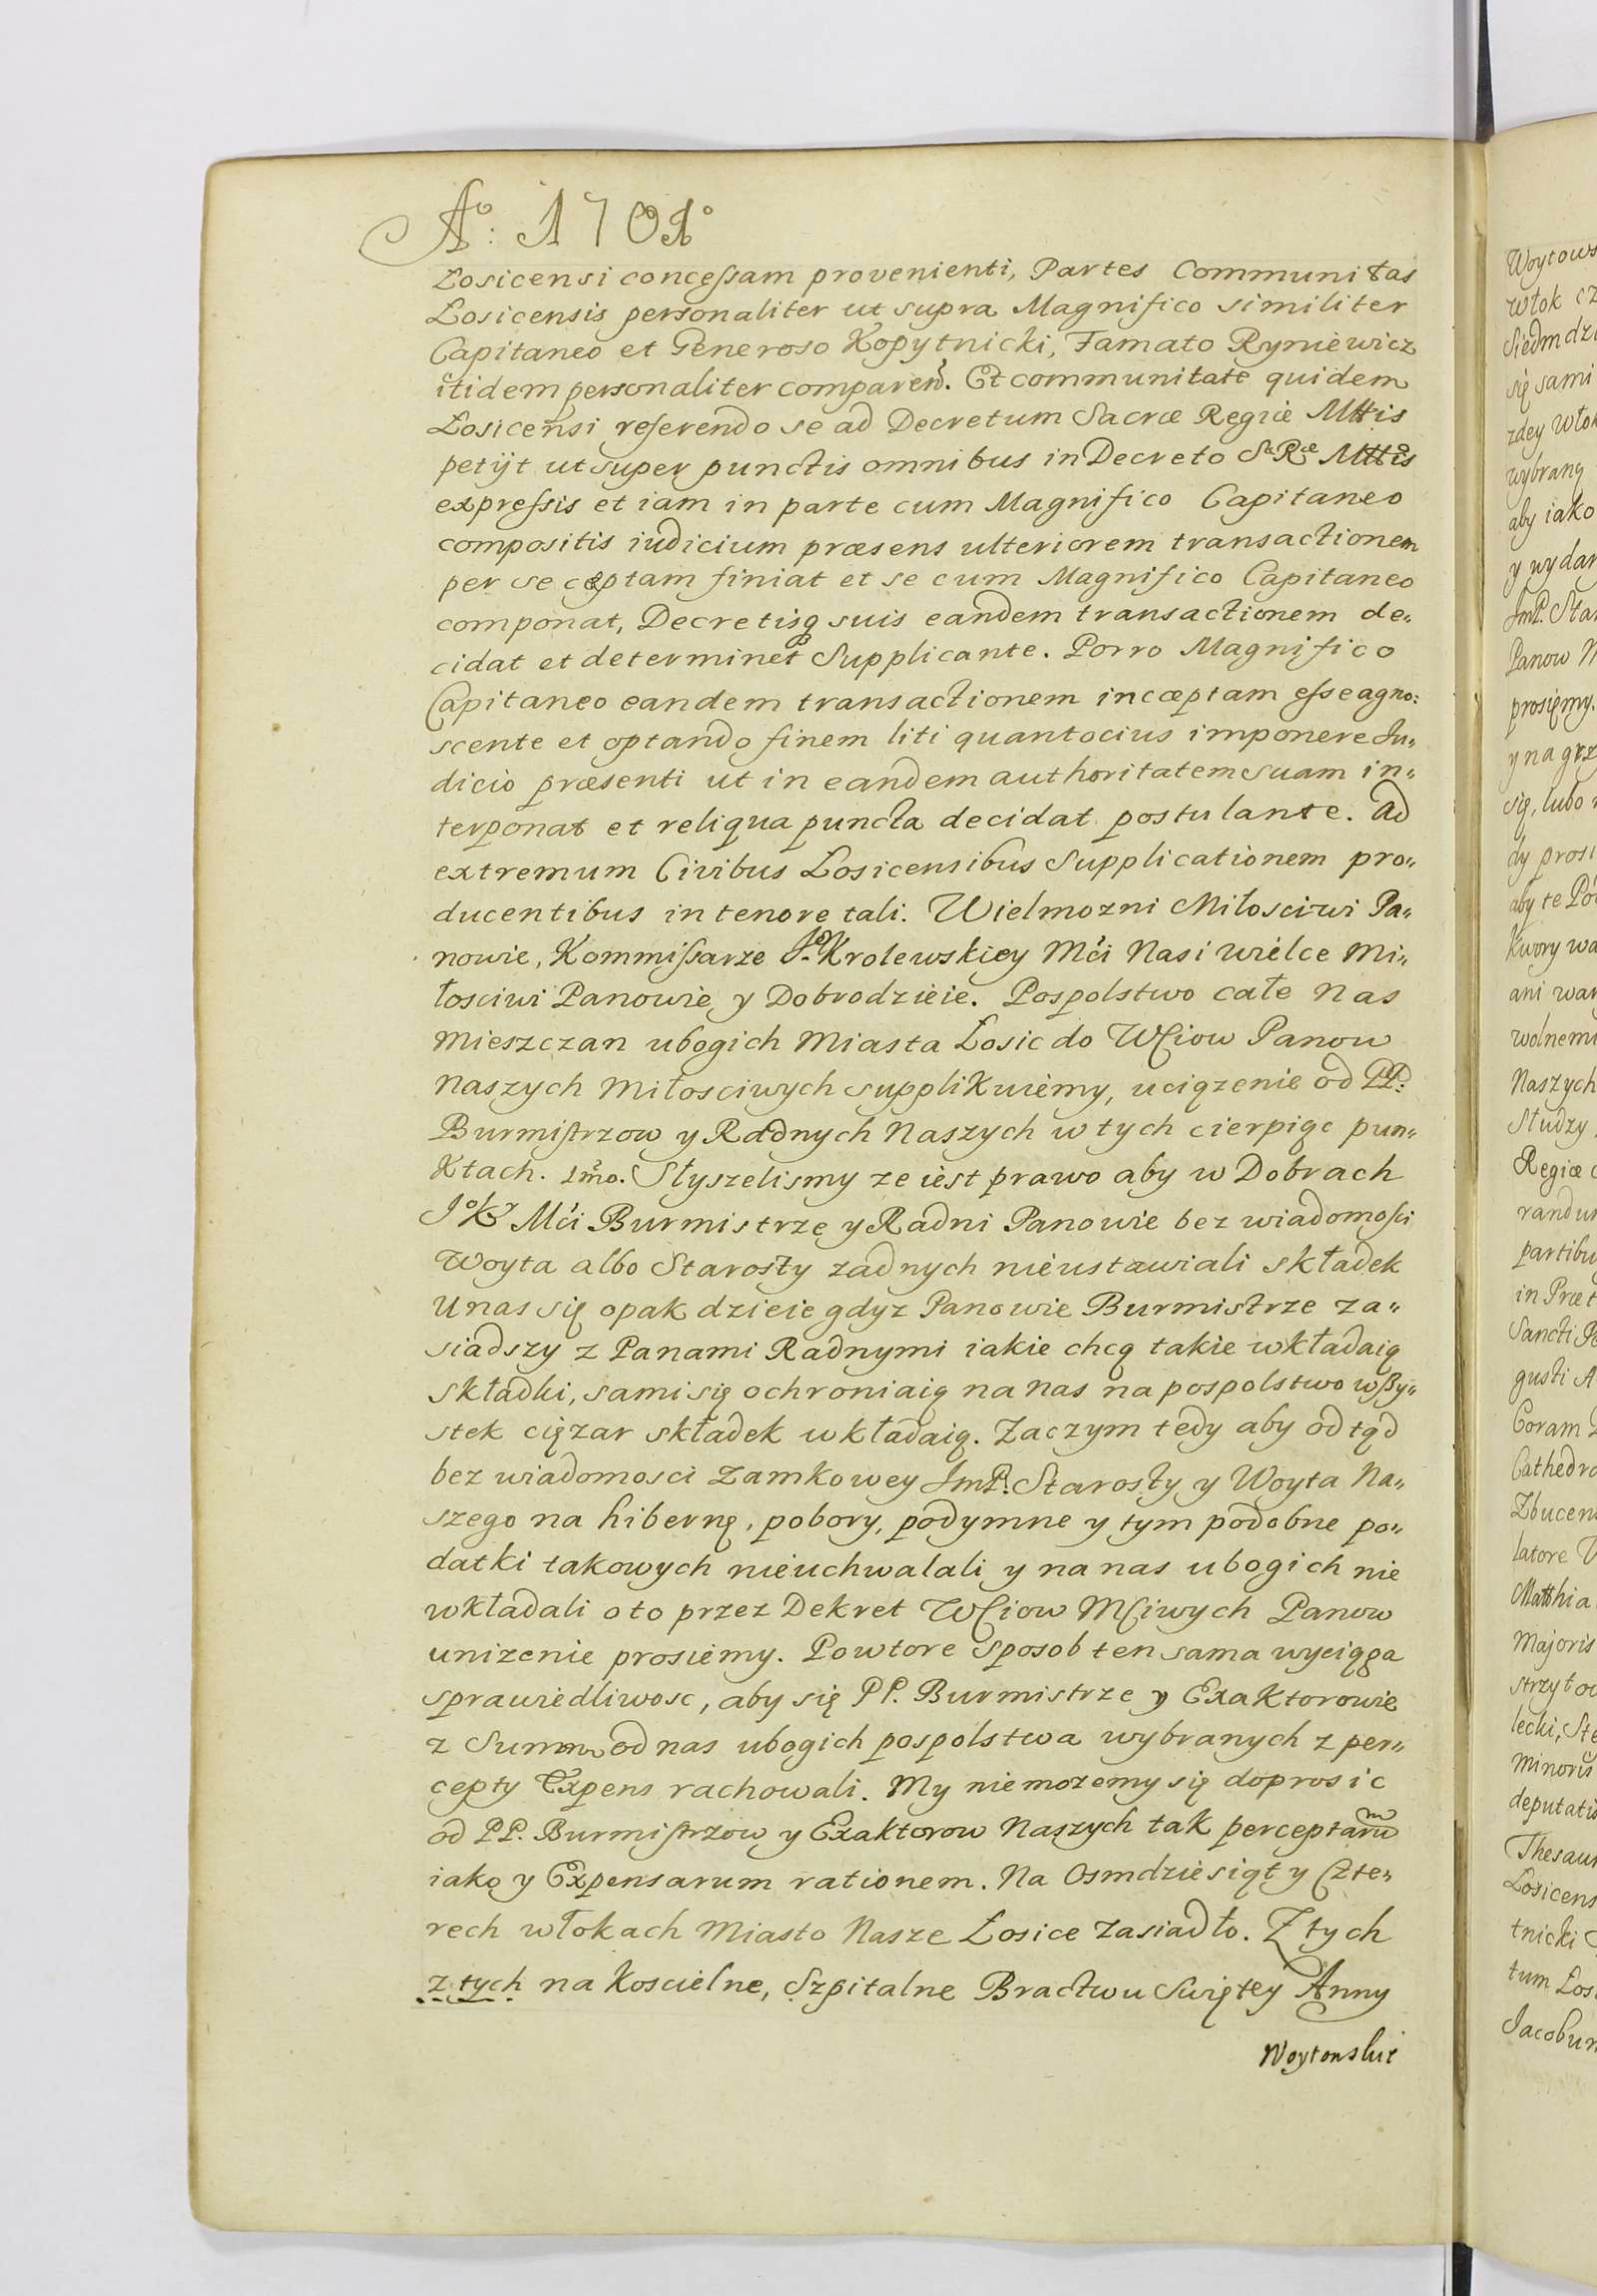 Aº: 1701º
Łosicensi concessam provenienti, Partes Communitas
Łosicensis personaliter ut supra Magnifico similiter
Capitaneo et Generoso Kopytnicki, Famato Ryniewicz
itidem personaliter comparen. Et communitate quidem
Łosicensi referendo se ad Decretum Sacræ Regiæ Mttis
petijt ut super punctis omnibus in Decreto Sæ Ræ Mttis
expressis et iam in parte cum Magnifico Capitaneo
compositis iudicium præsens ulteriorem transactionem
per se cæptam finiat et se cum Magnifico Capitaneo
componat, Decretisq suis eandem transactionem de„
cidat et determinet Supplicante. Porro Magnifico
Capitaneo eandem transactionem incæptam esse agno:
scente et optando finem liti quantocius imponere Iu„
dicio præsenti ut in eandem authoritatem suam in„
terponat et reliqua puncta decidat postulante. Ad
extremum Civibus Łosicensibus Supplicationem pro„
ducentibus in tenore tali. Wielmozni Miłosciwi Pa„
nowie, Kommissarze Jº Krolewskiey Mći Nasi wielce Mi„
łosciwi Panowie y Dobrodzieie. Pospolstwo całe Nas
Mieszczan ubogich Miasta Łosic do WSciow Panow
Naszych Miłosciwych supplikuiemy, uciązenie od PP:
Burmistrzow y Radnych Naszych w tych cierpiąc pun„
ktach. 1mo. Słyszelismy ze iest prawo aby w Dobrach
Jº K Mći Burmistrze y Radni Panowie bez wiadomości
Woyta albo Starosty zadnych nieustawiali składek
U nas się opak dzieie gdyz Panowie Burmistrze za„
siadszy z Panami Radnymi iakie chcą takie wkładaią
składki, sami się ochroniaią na nas na pospolstwo wszy„
stek cięzar składek wkładaią. Zaczym tedy aby od tąd
bez wiadomosci Zamkowey JmP. Starosty y Woyta Na„
szego na hibernę, pobory, podymne y tym podobne po„
datki takowych nieuchwalali y na nas ubogich nie
wkładali oto przez Dekret WSciow MSciwych Panow
unizenie prosiemy. Powtore Sposob ten sama wyciąga
sprawiedliwosc, aby się PP. Burmistrze y Exaktorowie
z Summ od nas ubogich pospolstwa wybranych z per„
cepty Expens rachowali. My niemozemy się doprosic
od PP. Burmistrzow y Exaktorow Naszych tak perceptarum
iako y Expensarum rationem. Na Osmdziesiąt y Czte„
rech włokach Miasto Nasze Łosice zasiadło. Z tych
z tych na Koscielne, Szpitalne Bractwu Swiętey Anny
Woytowskie
Woytows
włok cz
Siedmdzi
się sami
zdey Włok
wybraną
aby iako
y wydan
JmP. Star
Panow M
prosiemy.
y na grz
się, lubo
dy prosi
aby te Po
kwory wa
ani wan
wolnemi
Naszych
Słudzy
Regiæ
randum
partibu
in Præt
Sancti
gusti A
Coram
Cathedra
Zbucens
latore
Matthia
Majoris
strzy
lecki, Ste
Minoris
deputatis
Thesaur
Łosicens
tnicki
tum Łos
Jacobum